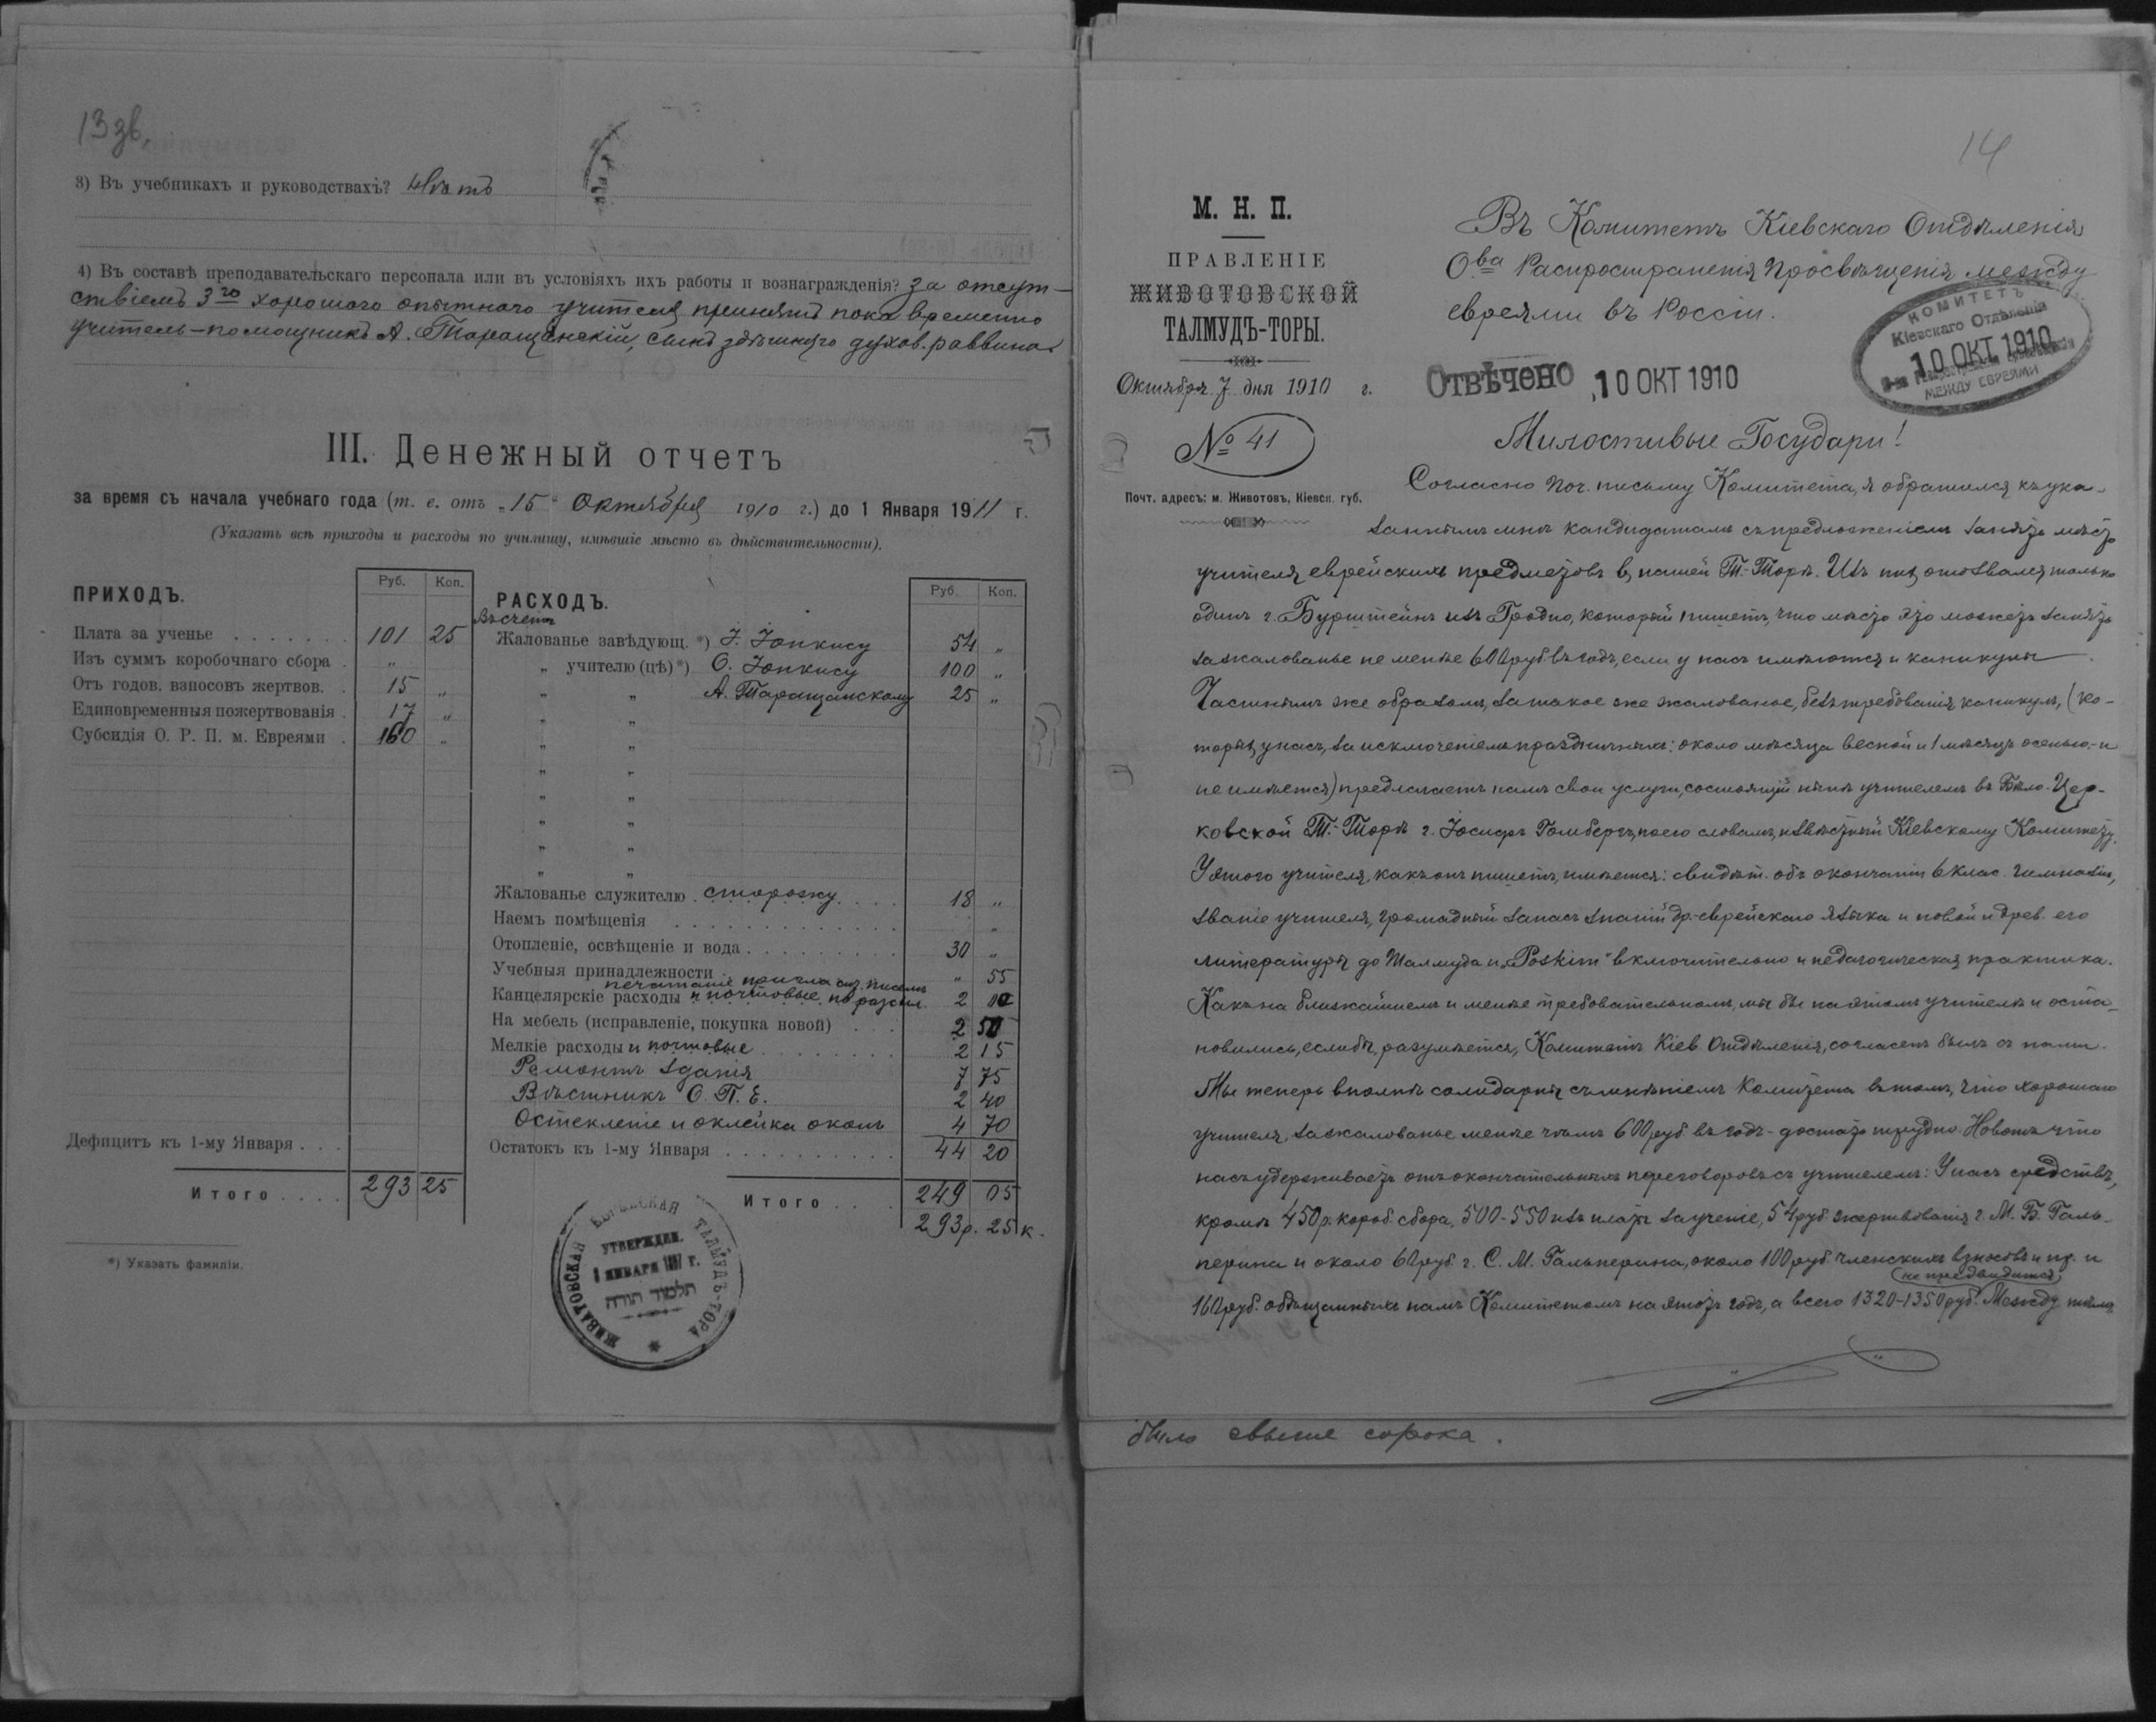 13 зв.
3) Въ учебникахъ и руководствахъ? Нѣтъ
4) Въ составѣ преподавательскаго персонала или въ условіяхъ ихъ работы и вознагражденія? За отсут-
ствіемъ 3го хорошаго опытнаго учителя принятъ пока временно
учитель-помощникъ А. Таращанскій, сынъ здѣшняго духов. раввина
III. Денежный отчетъ
за время съ начала учебнаго года (т. е. отъ „15“ Октября 1910 г.) до 1 Января 1911 г.
(Указать всѣ приходы и расходы по училищу, имѣвшіе мѣсто въ дѣйствительности).
ПРИХОДЪ. Руб. Коп.
Плата за ученье 101 25
Изъ суммъ коробочнаго сбора „
Отъ годов. взносовъ жертвов. 15 „
Единовременныя пожертвованія 17 „
Субсидія О. Р. П. м. Евреями 160 „
Дефицитъ къ 1-му Января
Итого 293 25
*) Указать фамиліи.
РАСХОДЪ. Руб. Коп.
Въ счетъ
Жалованье завѣдующ. *) І. Іонкису 54 „
„ учителю (цѣ) *) О. Іонкису 100 „
„ „ А. Таращанскому 25 „
„ „
„ „
„ „
„ „
„ „
„ „
„ „
Жалованье служителю сторожу 18 „
Наемъ помѣщенія „
Отопленіе, освѣщеніе и вода 30 „
Учебныя принадлежности „ 55
печатаніе приглаш. писемъ
Канцелярскіе расходы и почтовые по разсыл. 2
На мебель (исправленіе, покупка новой) 2 50
Мелкіе расходы и почтовые 2 15
Ремонтъ зданія 7 75
Вѣстникъ О. П. Е. 2 40
Остекленіе и оклейка оконъ 4 70
Остатокъ къ 1-му Января 44 20
Итого 249 05
293р. 25к.
ЖИВАТОВСКАЯ ЕВРЕЙСКАЯ ТАЛМУДЪ-ТОРА
УТВЕРЖДЕН.
ЯНВАРЯ
תלמוד תורה
14
М. Н. П.
ПРАВЛЕНІЕ
ЖИВОТОВСКОЙ
ТАЛМУДЪ-ТОРЫ.
Октября 7 дня 1910 г.
№ 41
Почт. адресъ: м. Животовъ, Кіевск. губ.
Въ Комитетъ Кіевскаго Отдѣленія
О-ва Распространенія Просвѣщенія между
евреями въ Россіи.
КОМИТЕТЪ
Кіевскаго Отдѣленія
10 ОКТ 1910
О-ва Распространенія Просвѣщенія
МЕЖДУ ЕВРЕЯМИ
ОТВѢЧЕНО 10 ОКТ 1910
Милостивые Государи!
Согласно поч. письму Комитета, я обратился къ ука-
заннымъ мнѣ кандидатамъ съ предложеніемъ занять мѣсто
учителя еврейскихъ предметовъ въ нашей Т.-Торѣ. Изъ нихъ отозвался только
одинъ г. Бурштейнъ изъ Гродно, который пишетъ, что мѣсто это можетъ занять
за жалованье не менѣе 600 руб въ годъ, если у насъ имѣются и каникулы.
Частнымъ же образомъ, за такое же жалованье, безъ требованія каникулъ, (ко-
торыхъ у насъ, за исключеніемъ праздничныхъ: около мѣсяца весной и 1 мѣсяцъ осенью, и
не имѣется) предлагаетъ намъ свои услуги, состоящій нынѣ учителемъ въ Бѣло-Цер-
ковской Т.-Торѣ г. Іосифъ Гомбергъ, по его словамъ, извѣстный Кіевскому Комитету.
У этого учителя, какъ онъ пишетъ, имѣется: свидѣт. объ окончаніи 6 клас. гимназіи,
званіе учителя, громадный запасъ знаній др.-еврейскаго языка и новой и древ. его
литературы до Талмуда и „Poskim“ включительно и педагогическая практика.
Какъ на ближайшемъ и менѣе требовательномъ, мы бы на этомъ учителѣ и оста-
новились, если бы, разумѣется, Комитетъ Кіев. Отдѣленія, согласенъ былъ съ нами.
Мы теперь вполнѣ солидарны съ мнѣніемъ Комитета въ томъ, что хорошаго
учителя, за жалованье менѣе чѣмъ 600 руб. въ годъ - достать трудно. Но вотъ что
насъ удерживаетъ отъ окончательныхъ переговоровъ съ учителемъ: У насъ средствъ,
кромѣ 450 р. короб. сбора, 500-550 изъ платы за ученіе, 54 руб. жертвованія г. М. Б. Галь-
перина и около 60 руб. г. С. М. Гальперина, около 100 руб. членскихъ взносовъ и пр. и
160 руб. обѣщанныхъ намъ Комитетомъ на этотъ годъ, а всего 1320-1350 руб. не предвидится. Между тѣмъ
было свыше сорока.